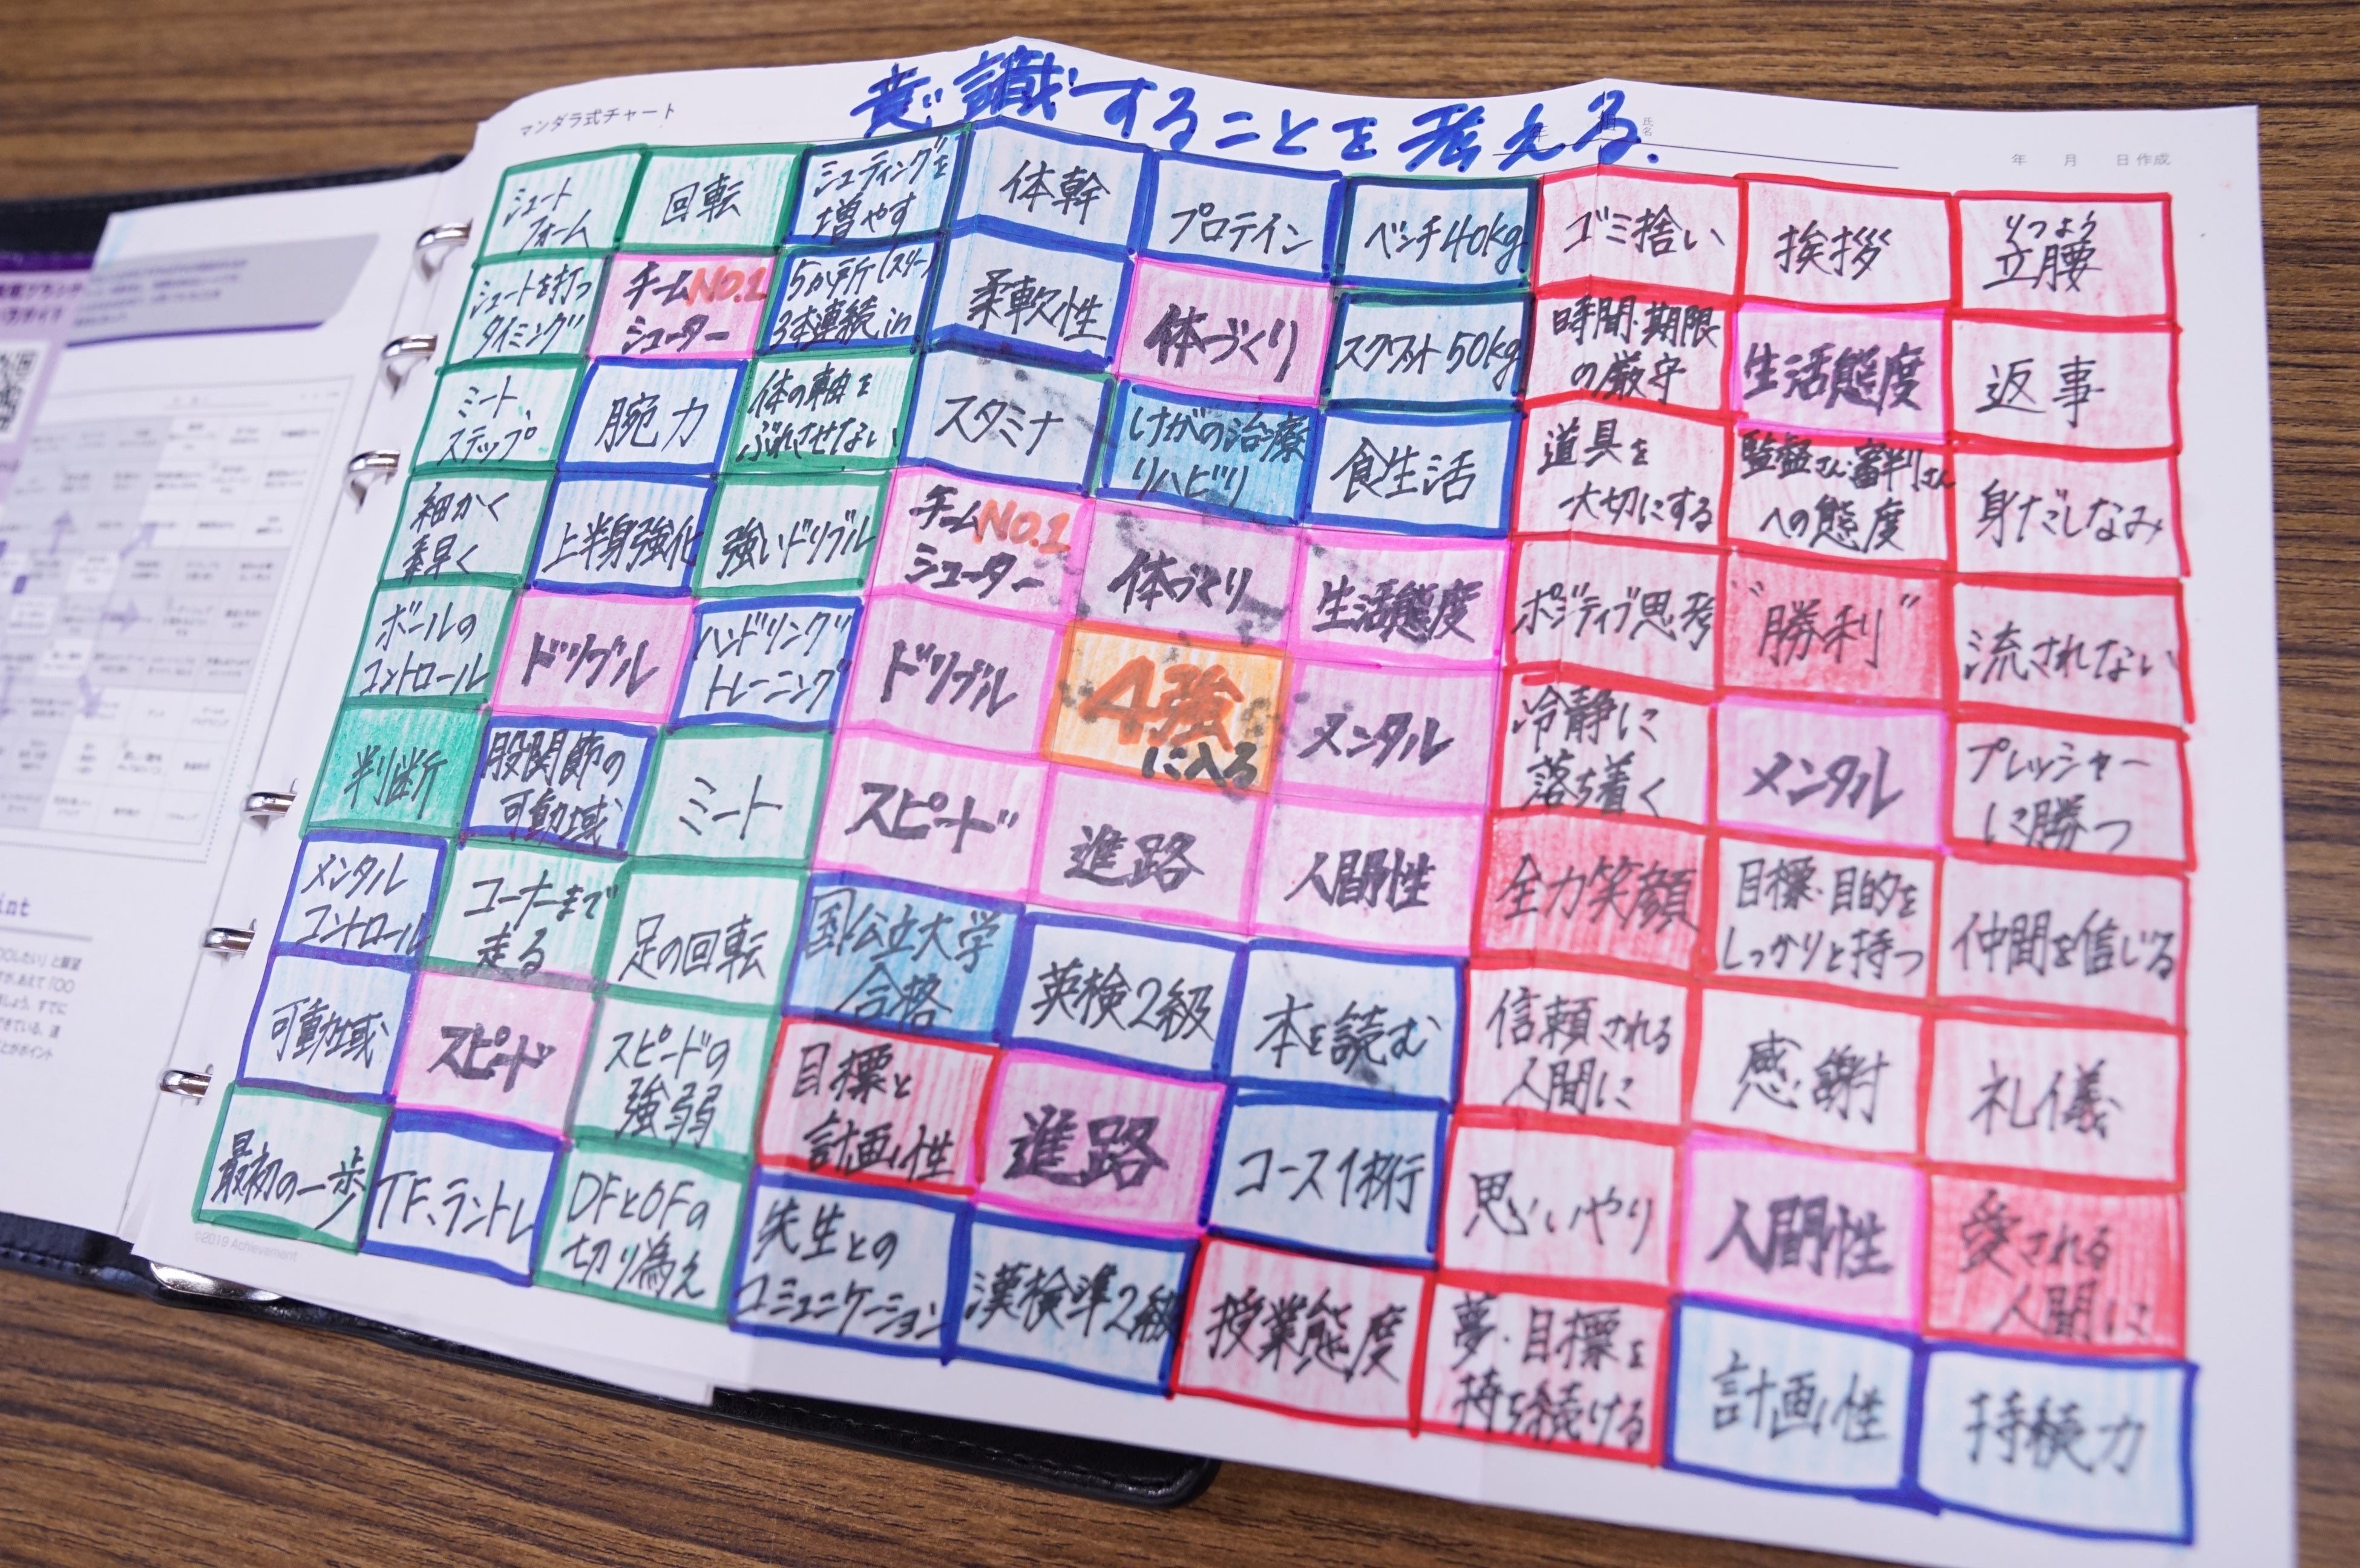 マンダラ式チャート
意識することを考える.
年 組 氏名
年 月 日作成
シュート
フォーム
回転
シューティングを
増やす
体幹
プロテイン
ベンチ40kg
ゴミ捨い
挨拶
りつよう
立腰
シュートを打つ
タイミング
チームNO.1
シューター
5か所(スリー)
3本連続in
柔軟性
体づくり
スクワット50kg
時間・期限
の厳守
生活態度
返事
ミート
ステップ
腕力
体の軸を
ぶれさせない
スタミナ
けがの治療
リハビリ
食生活
道具を
大切にする
監督さん・審判さん
への態度
身だしなみ
細かく
素早く
上半身強化
強いドリブル
チームNO.1
シューター
体づくり
生活態度
ポジティブ思考
"勝利"
流されない
ボールの
コントロール
ドリブル
ハンドリング
トレーニング
ドリブル
4強
に入る
メンタル
冷静に
落ち着く
メンタル
プレッシャー
に勝つ
判断
股関節の
可動域
ミート
スピード
進路
人間性
全力笑顔
目標・目的を
しっかりと持つ
仲間を信じる
メンタル
コントロール
コーナーまで
走る
足の回転
国公立大学
合格
英検2級
本を読む
信頼される
人間に
感謝
礼儀
可動域
スピード
スピードの
強弱
目標と
計画性
進路
コース1移行
思いやり
人間性
愛される
人間に
最初の一歩
TF、ラントレ
DFとOFの
切り為え
先生との
コミュニケーション
漢検準2級
授業態度
夢・目標を
持ち続ける
計画性
持続力
©2019 Achievement